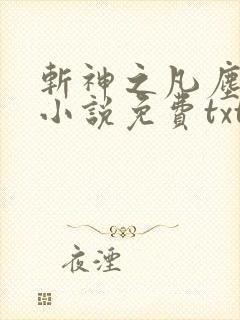 斬神之凡塵
小說免費txt
夜湮